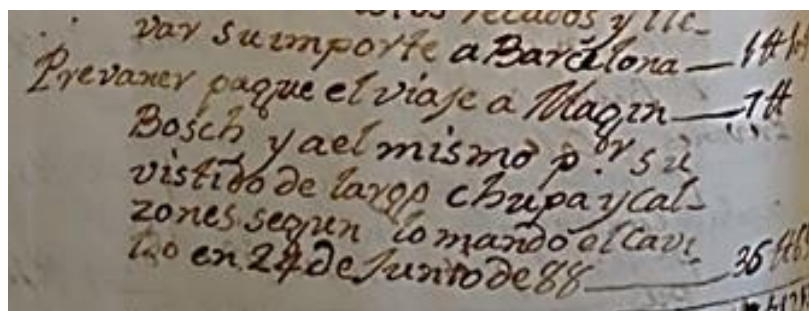 recados y lle-
var su importe a Barcelona — 1tt
Prevaner paque el viaje a Magin — 7tt
Bosch y a el mismo p.or su
vistido de largo chupa y cal-
zones segun lo mando el Cavi
ldo en 24 de Junio de 88 — 36tt6